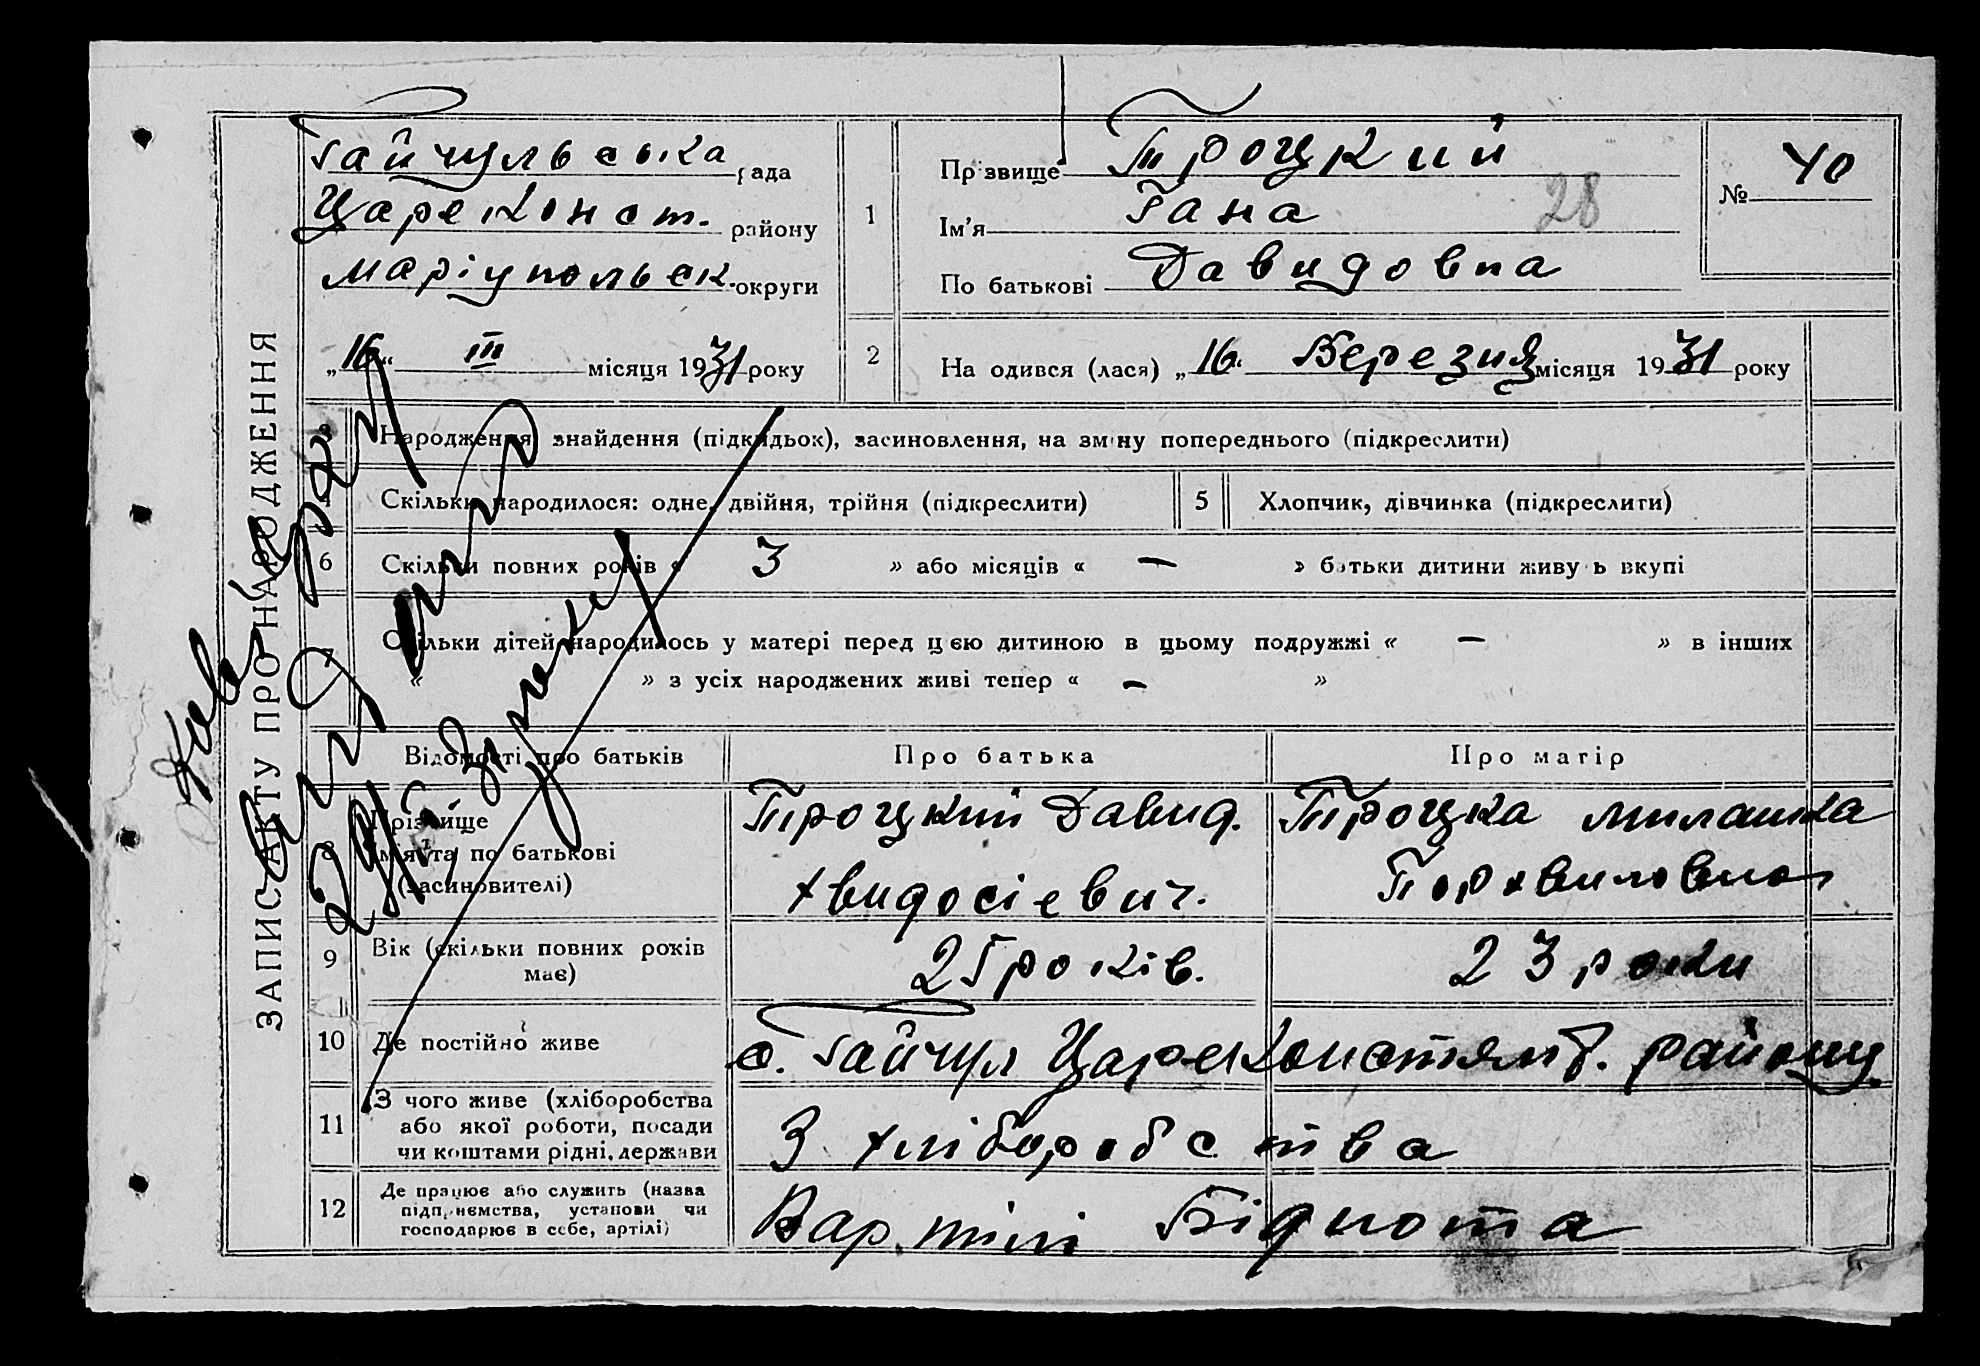 ЗАПИС АКТУ ПРО НАРОДЖЕННЯ
Гайчульська рада
Цареконст. району
Маріупольск. округи
„16“ III місяця 1931 року
1
Прізвище Троцкий
Ім'я Гана
28
По батькові Давидовна
№ 40
2
На одився (лася) „16“ Березня місяця 1931 року
3 Народження, знайдення (підкидьок), засиновлення, на зміну попереднього (підкреслити)
Скільки народилося: одне, двійня, трійня (підкреслити)
5 Хлопчик, дівчинка (підкреслити)
6 Скільки повних років « 3 » або місяців « — » батьки дитини живуть вкупі
7 Скільки дітей народилось у матері перед цією дитиною в цьому подружжі « — » в інших
« » з усіх народжених живі тепер « — »
Відомості про батьків Про батька Про матір
8 Прізвище
Ім'я та по батькові
(засиновителі)
Троцкий Давид.
Хвидосієвич.
Троцка Милашка
9 Вік (скільки повних років
має)
25 років. 23 роки
10 Де постійно живе с. Гайчул Царекон­стянт. району
11 З чого живе (хліборобства
або якої роботи, посади
чи коштами рідні, держави
З хліборобства
12 Де працює або служить (назва
підприємства, установи чи
господарює в себе, артілі)
Вартілі Біднота